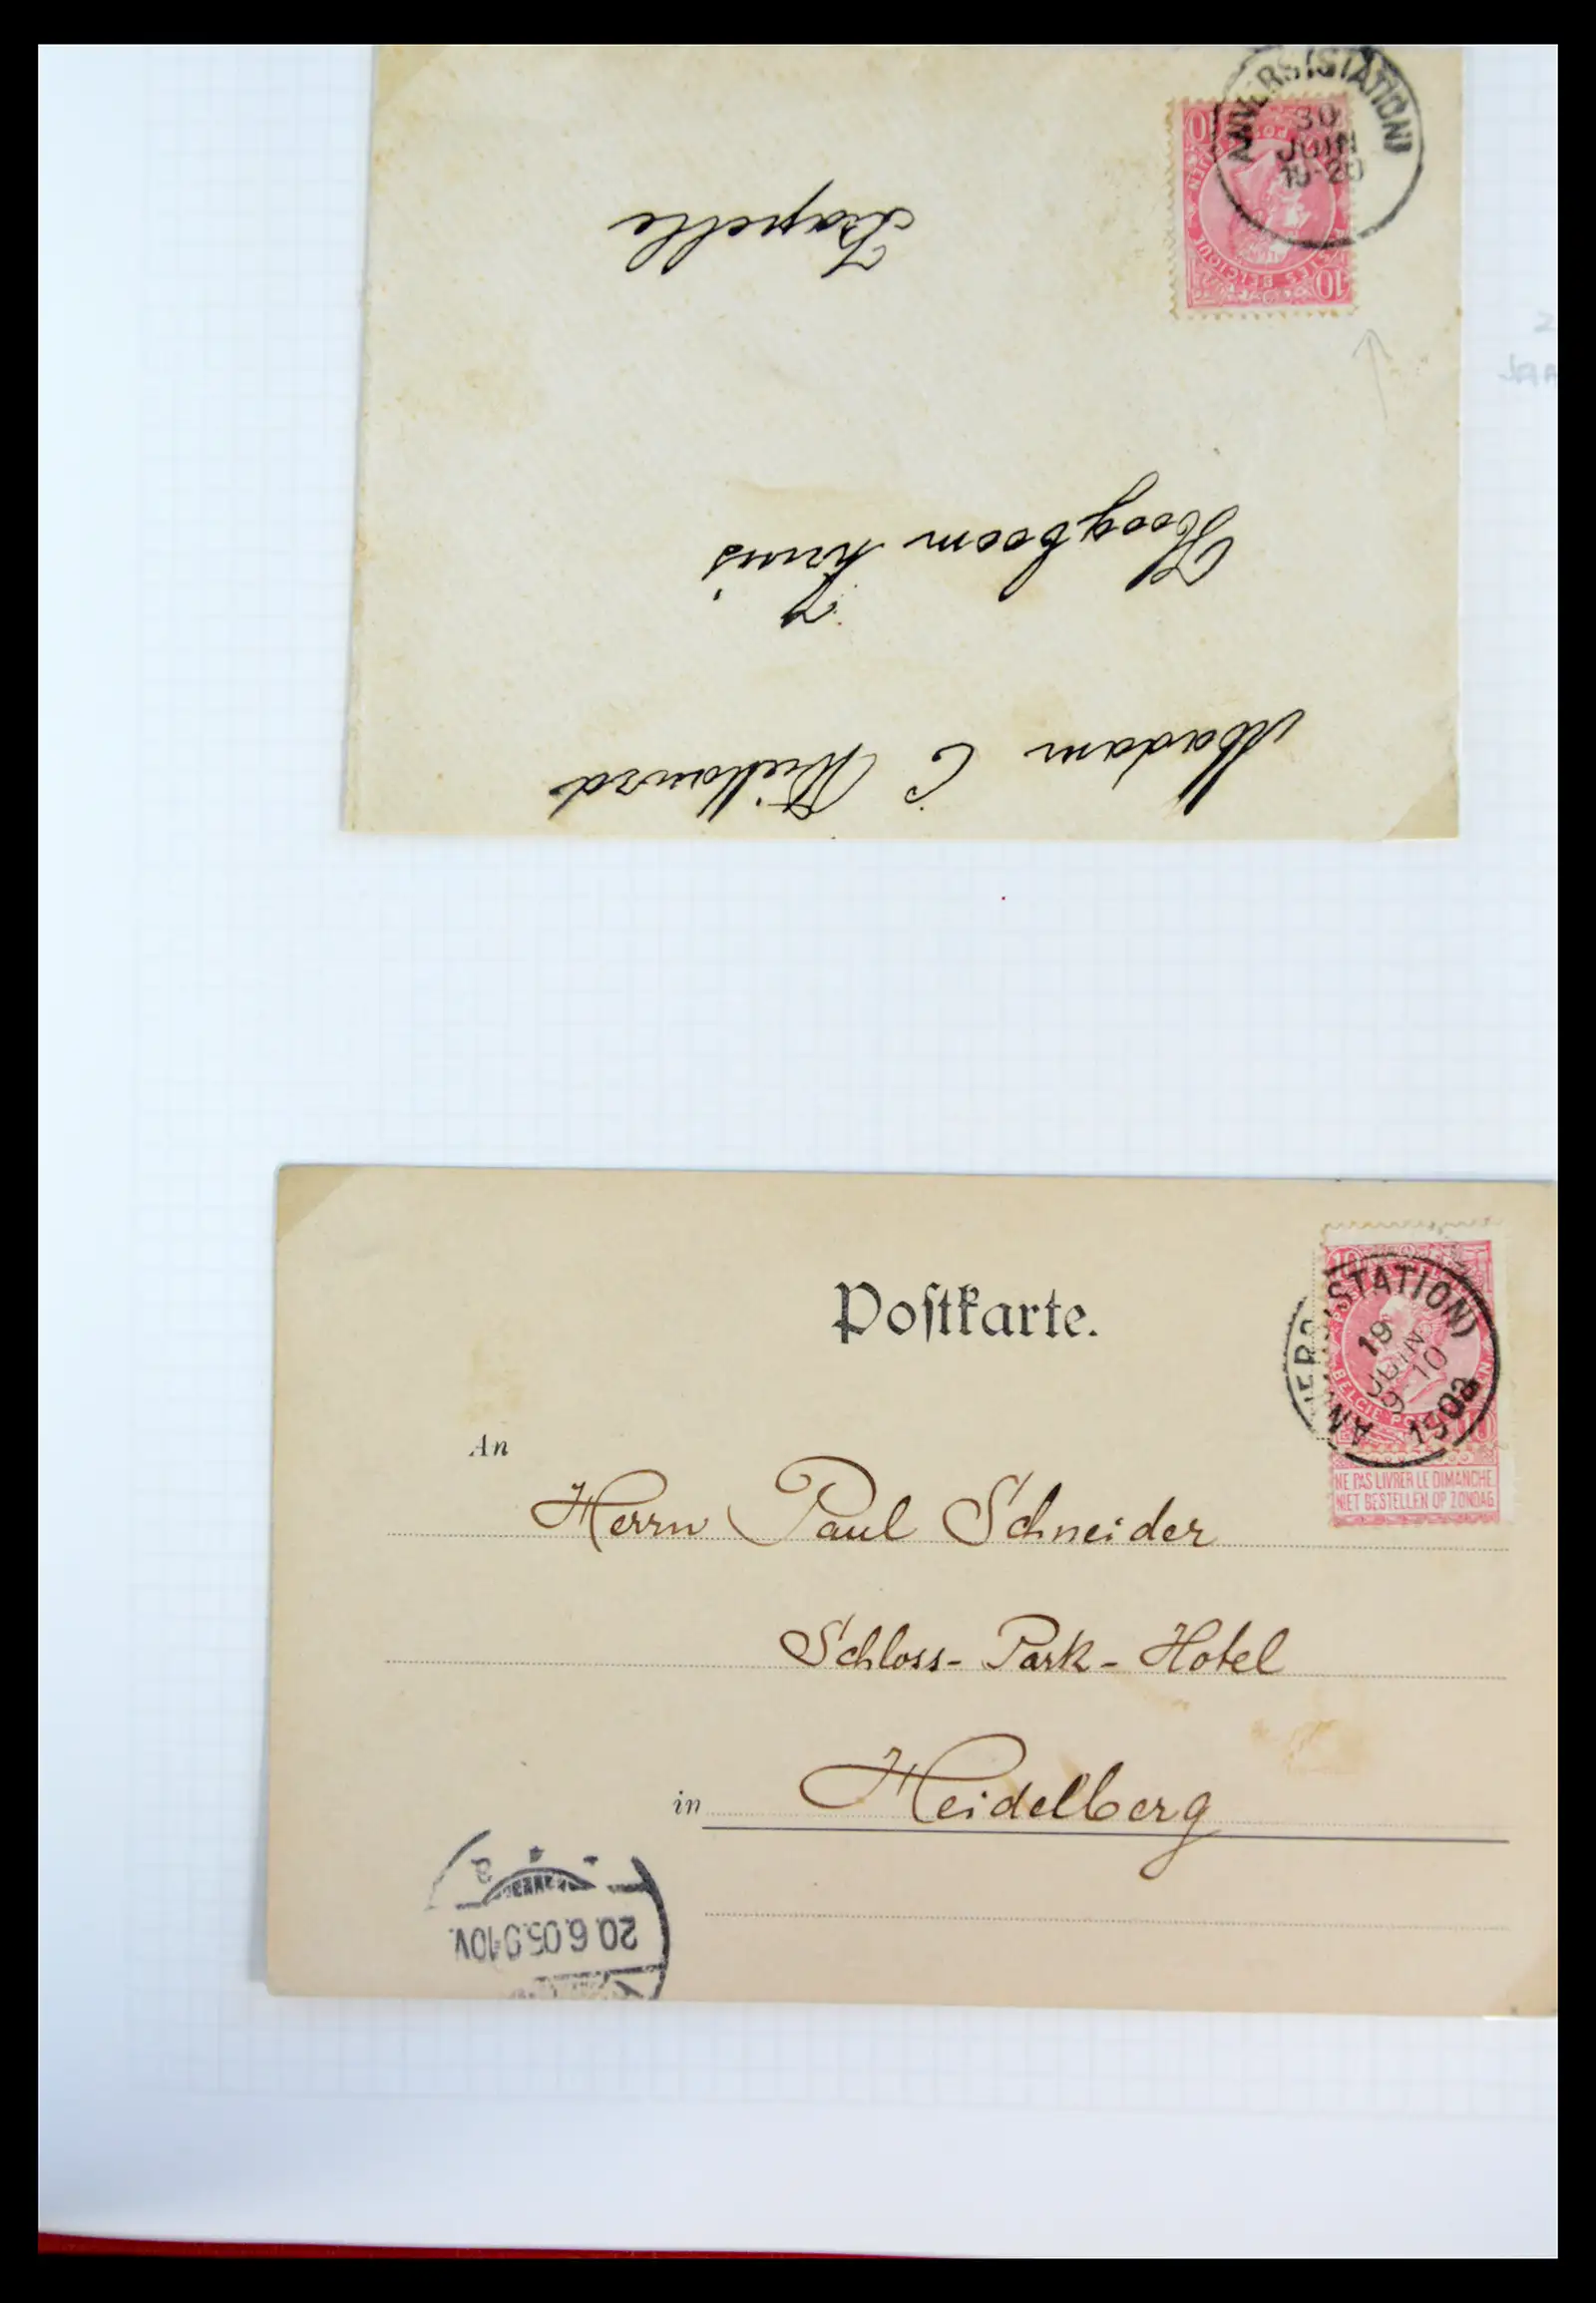 ANVERS (STATION)
30
JUIN
19-20
10
10
POSTES BELGIQUE
Madam C
Hoogboom huis
Kapelle
Postkarte.
ANVERS (STATION)
19
JUIN
9-10
10
10
BELGIE
NE PAS LIVRER LE DIMANCHE
NIET BESTELLEN OP ZONDAG
An
Herrn Paul Schneider
Schloss-Park-Hotel
in Heidelberg
20.6.03.9-10V.